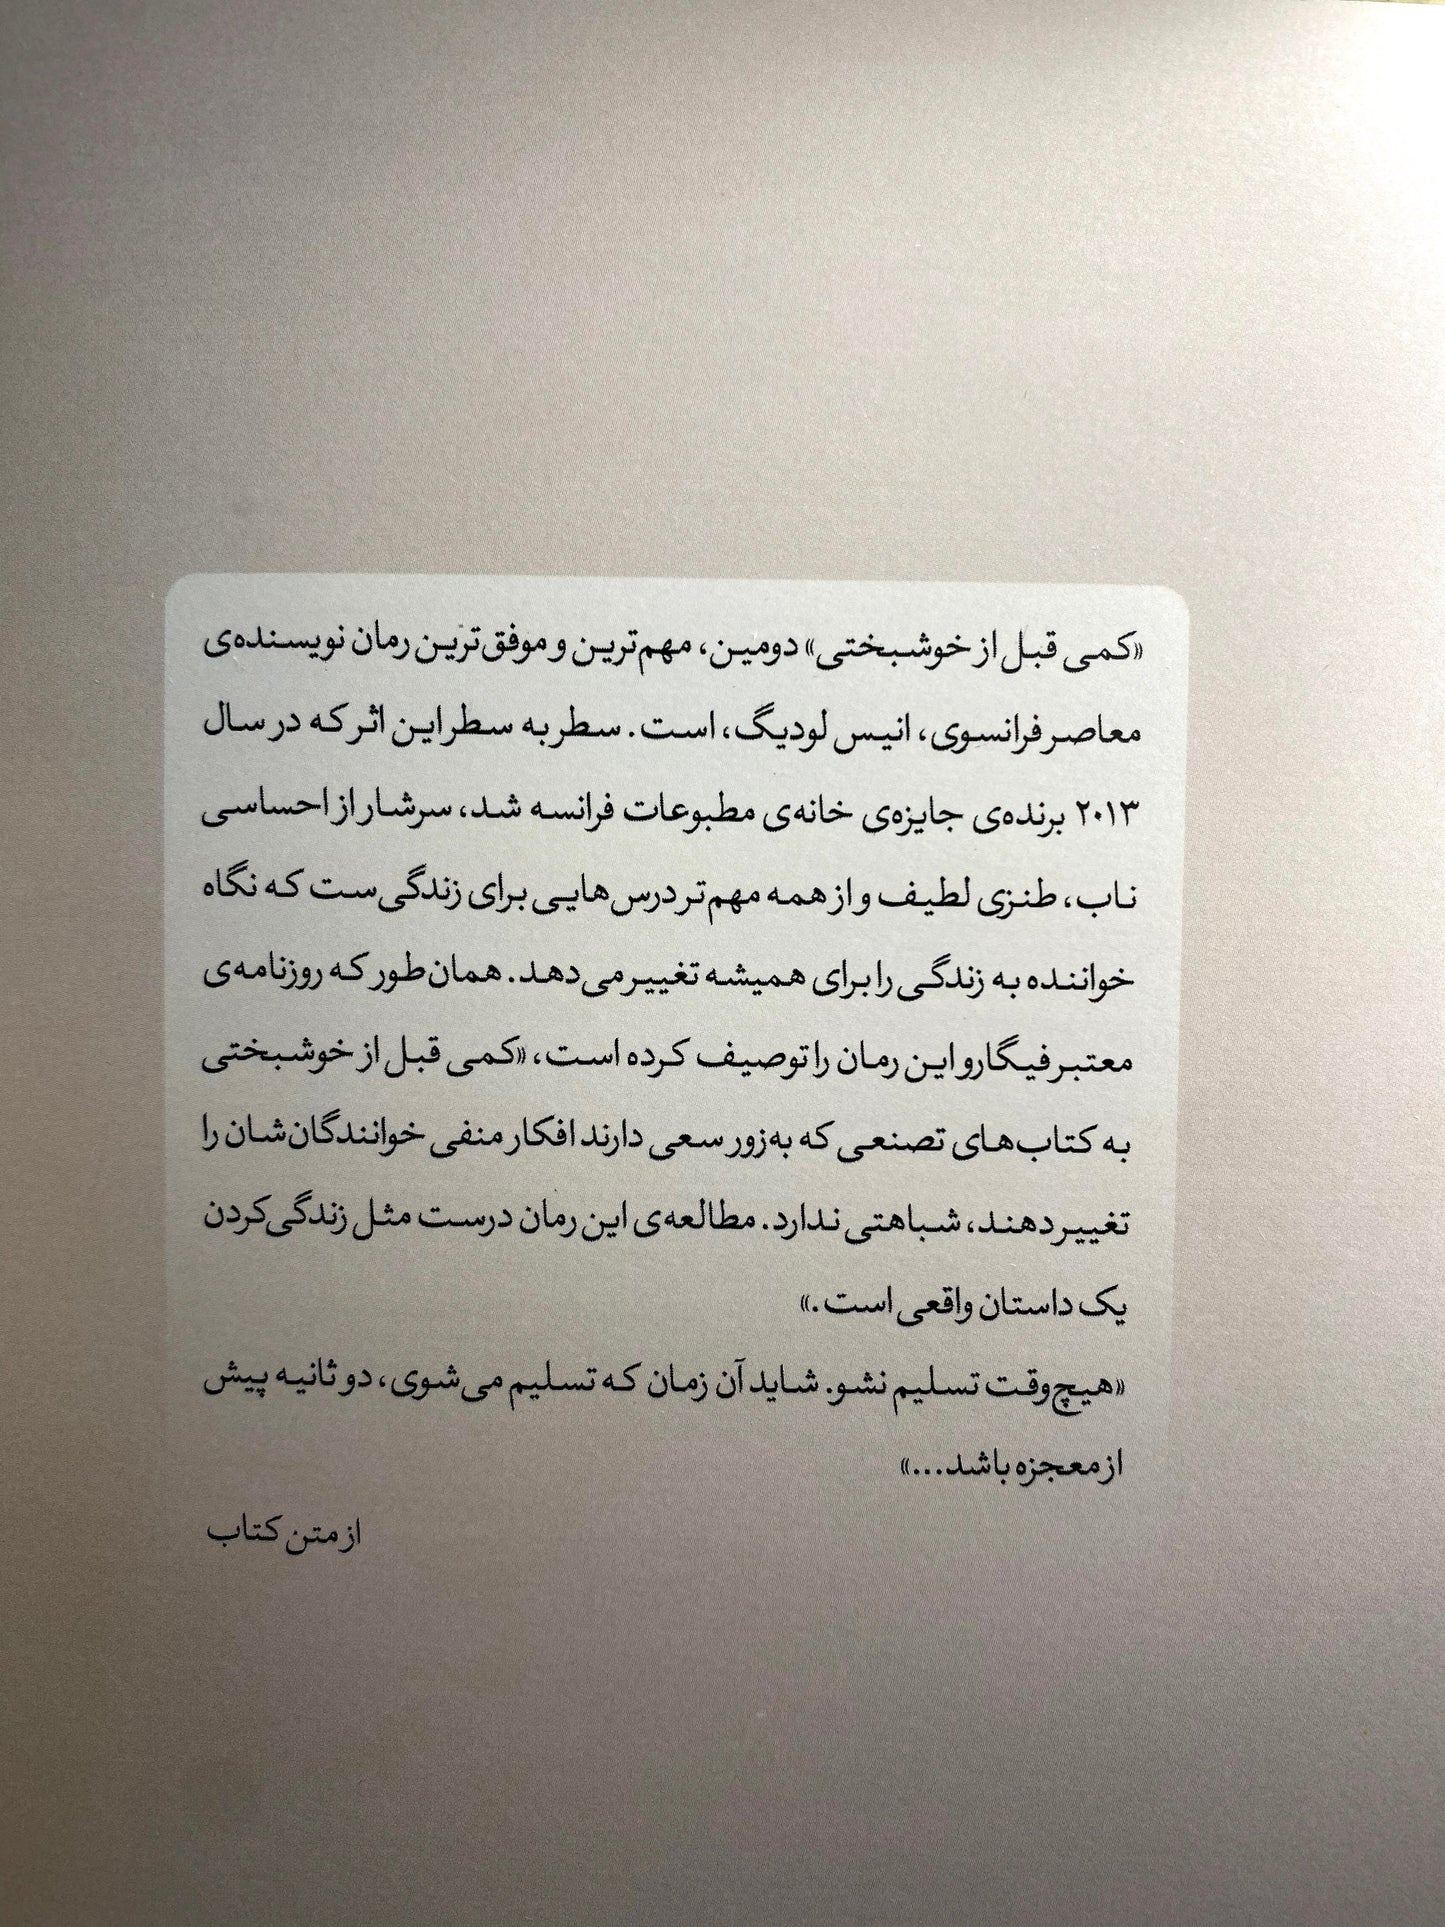 «کمی قبل از خوشبختی» دومین، مهم‌ترین و موفق‌ترین رمان نویسنده‌ی
معاصر فرانسوی، انیس لودیگ، است. سطر به سطر این اثر که در سال
۲۰۱۳ برنده‌ی جایزه‌ی خانه‌ی مطبوعات فرانسه شد، سرشار از احساسی
ناب، طنزی لطیف و از همه مهم‌تر درس‌هایی برای زندگی‌ست که نگاه
خواننده به زندگی را برای همیشه تغییر می‌دهد. همان‌طور که روزنامه‌ی
معتبر فیگارو این رمان را توصیف کرده است، «کمی قبل از خوشبختی
به کتاب‌های تصنعی که به‌زور سعی دارند افکار منفی خوانندگان‌شان را
تغییر دهند، شباهتی ندارد. مطالعه‌ی این رمان درست مثل زندگی‌کردن
یک داستان واقعی است.»
«هیچ‌وقت تسلیم نشو. شاید آن زمان که تسلیم می‌شوی، دو ثانیه پیش
از معجزه باشد...»
از متن کتاب